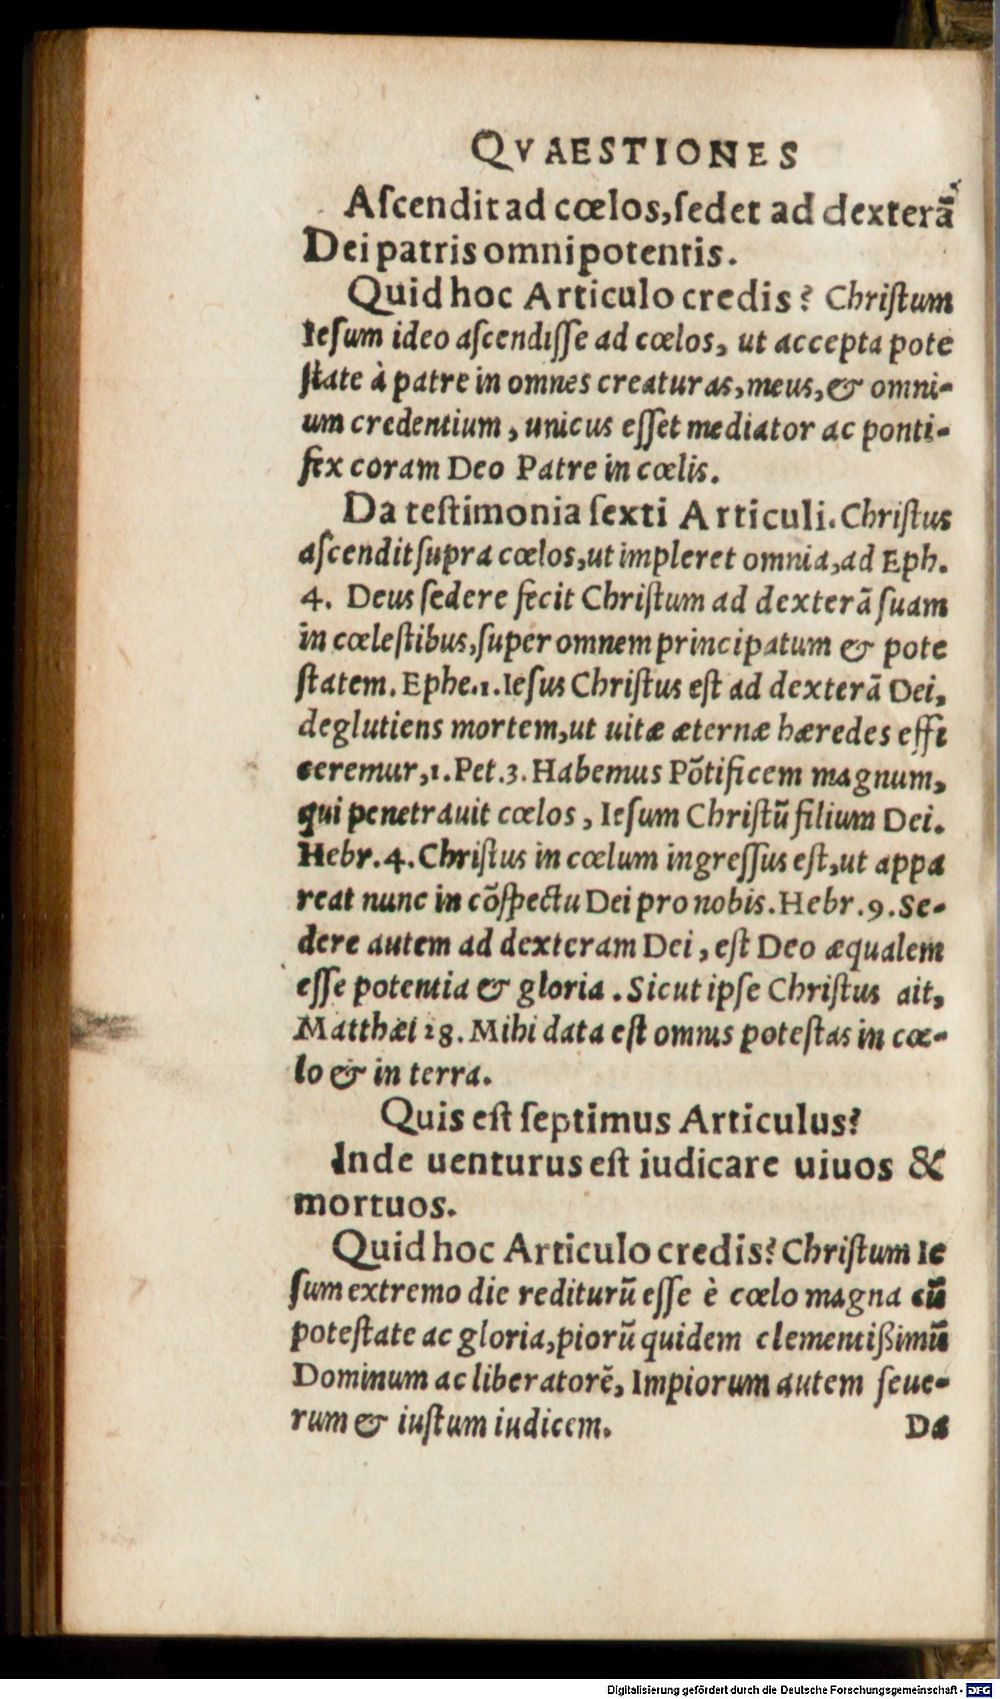 QVAESTIONES
Aſcendit ad cœlos, ſedet ad dexterã
Dei patris omnipotentis.
Quid hoc Articulo credis? Chriſtum
Ieſum ideo aſcendiſſe ad cœlos, ut accepta pote
ſtate à patre in omnes creaturas, meus, & omni-
um credentium, unicus eſſet mediator ac ponti-
fex coram Deo Patre in cœlis.
Da teſtimonia ſexti Articuli. Chriſtus
aſcendit ſupra cœlos, ut impleret omnia, ad Eph.
4. Deus ſedere fecit Chriſtum ad dexterã ſuam
in cœleſtibus, ſuper omnem principatum & pote
ſtatem. Ephe.1. Ieſus Chriſtus eſt ad dexterã Dei,
deglutiens mortem, ut uitæ æternæ hæredes effi
ceremur, 1. Pet.3. Habemus Põtificem magnum,
qui penetrauit cœlos, Ieſum Chriſtũ filium Dei.
Hebr.4. Chriſtus in cœlum ingreſſus eſt, ut appa
reat nunc in cõſpectu Dei pro nobis. Hebr.9. Se-
dere autem ad dexteram Dei, eſt Deo æqualem
eſſe potentia & gloria. Sicut ipſe Chriſtus ait,
Matthæi 28. Mihi data eſt omnis poteſtas in cœ-
lo & in terra.
Quis eſt ſeptimus Articulus?
Inde uenturus eſt iudicare uiuos &
mortuos.
Quid hoc Articulo credis? Chriſtum Ie
ſum extremo die rediturũ eſſe è cœlo magna cũ
poteſtate ac gloria, piorũ quidem clementißimũ
Dominum ac liberatorẽ, Impiorum autem ſeue-
rum & iuſtum iudicem.
Da
Digitalisierung gefördert durch die Deutsche Forschungsgemeinschaft - DFG